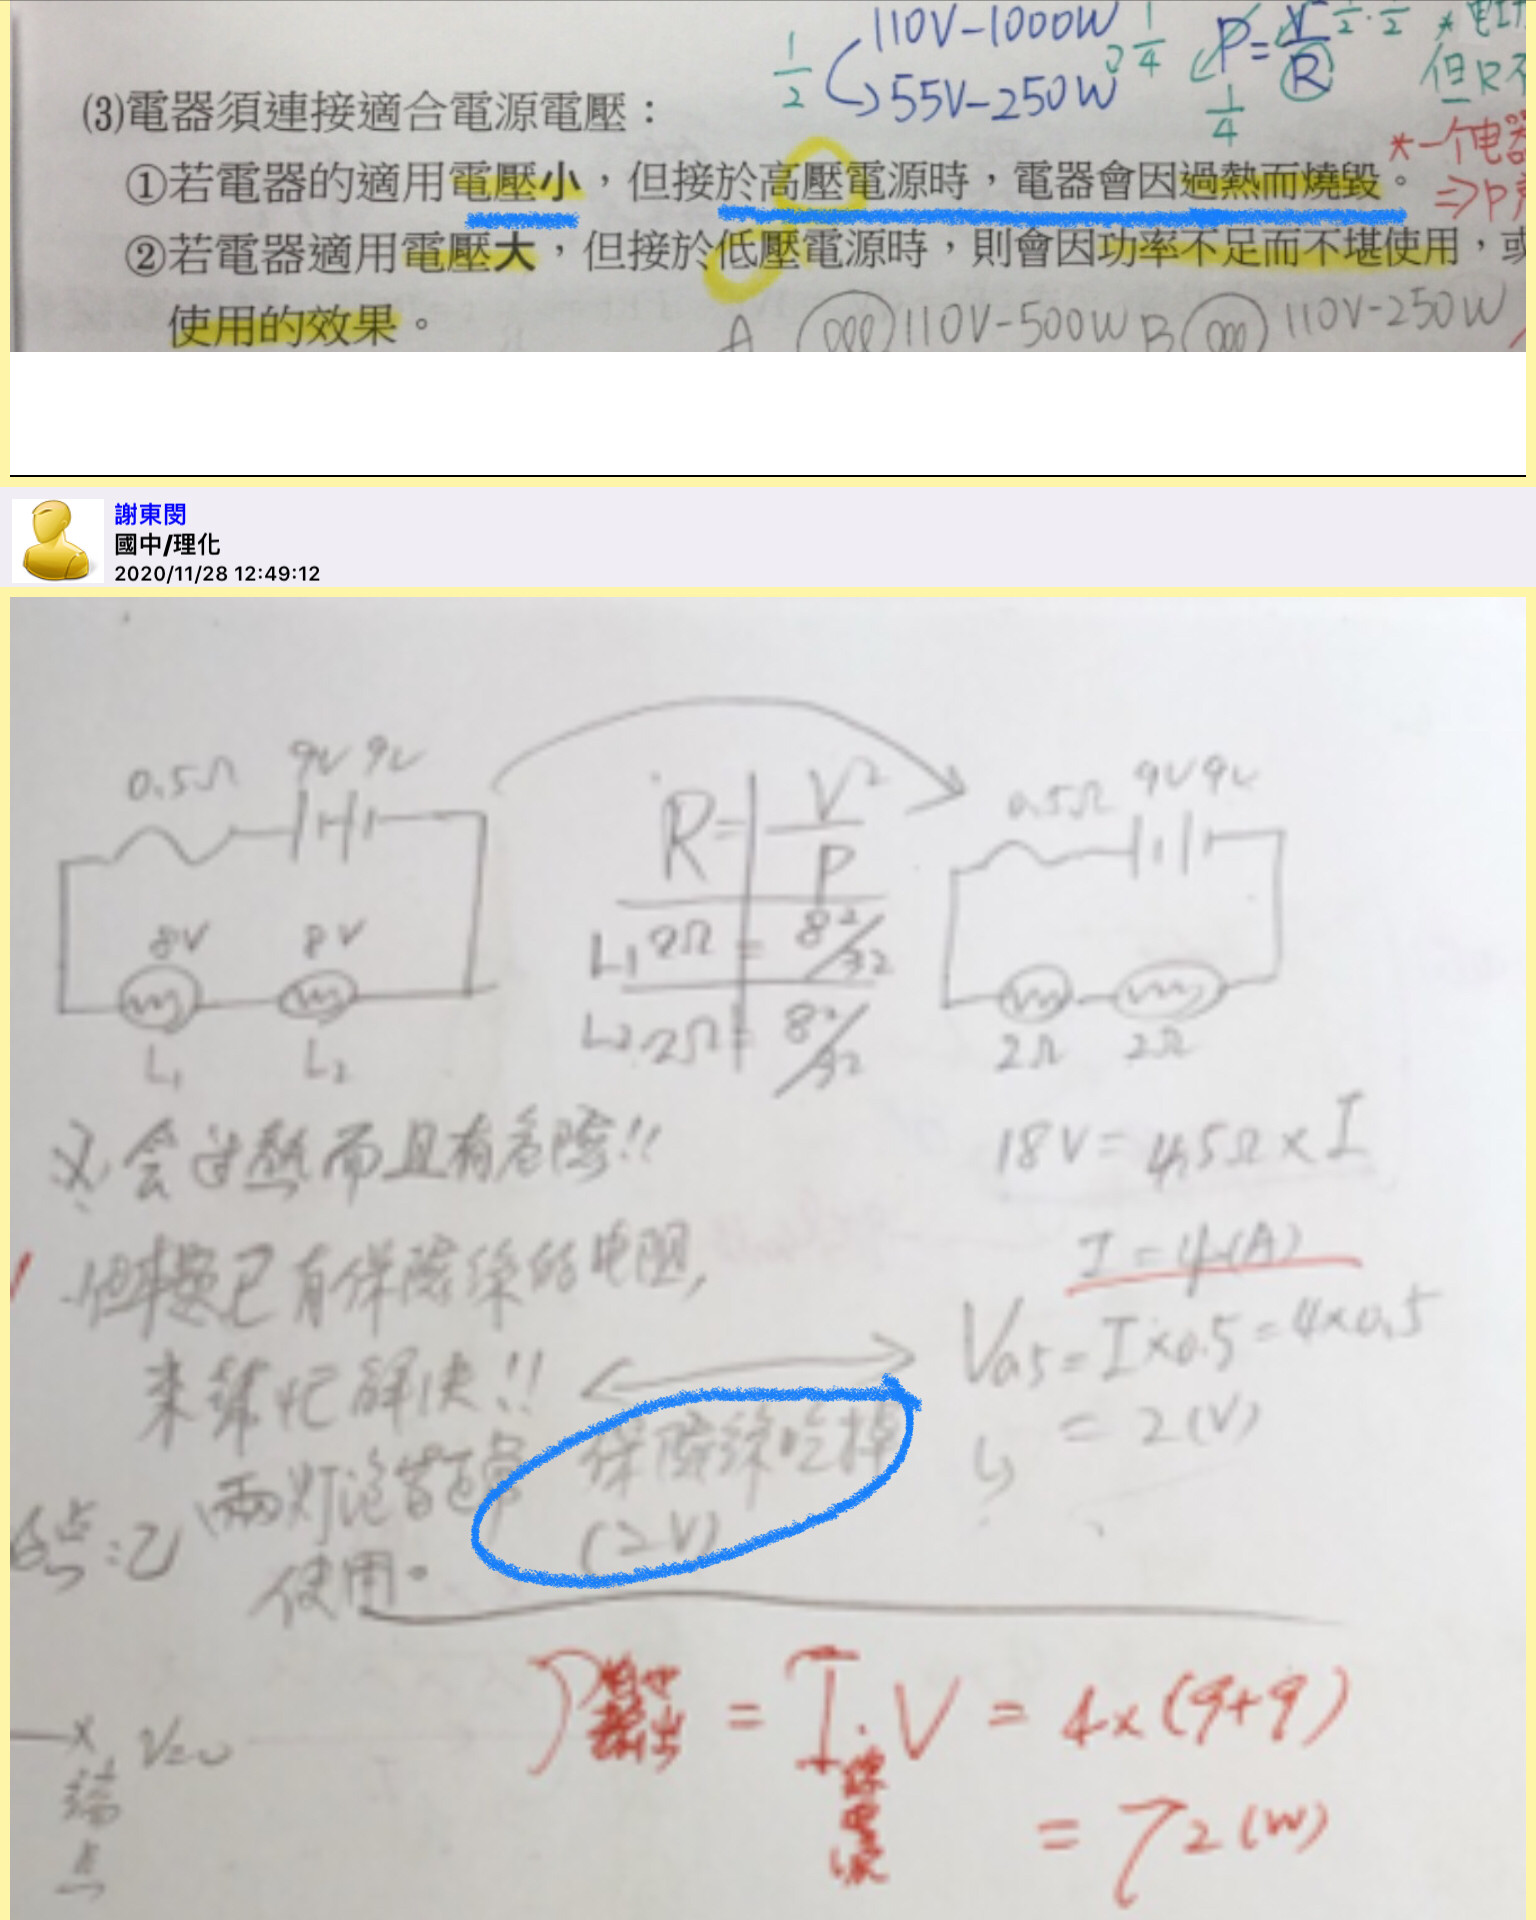 110V-1000W
1/4
P=V²/R
1/2·1/2
1/2
55V-250W
1/4
但R不
(3)電器須連接適合電源電壓：
*一个电器
①若電器的適用電壓小，但接於高壓電源時，電器會因過熱而燒毀。
=>P
②若電器適用電壓大，但接於低壓電源時，則會因功率不足而不堪使用，或
使用的效果。
A 110V-500W B 110V-250W
謝東閔
國中/理化
2020/11/28 12:49:12
0.5Ω 9V 9V
8V 8V
L₁ L₂
R = V²/P
L₁ 2Ω = 8²/32
L₂ 2Ω = 8²/32
0.5Ω 9V 9V
2Ω 2Ω
会过热而且有危险!!
但本题已有保險絲的电阻,
來幫忙解決!!
兩灯泡皆正常
使用。
18V = 4.5Ω x I
I = 4(A)
V0.5 = I x 0.5 = 4x0.5
= 2(V)
保險絲吃掉
(2V)
:乙
x V=0
端
点
P輸出 = I·V = 4x(9+9)
= 72(W)